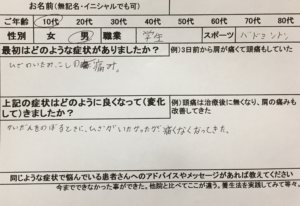 お名前(無記名・イニシャルでも可)
ご年齢 10代 20代 30代 40代 50代 60代 70代 80代
性別 女 男 職業 学生 スポーツ バドミントン
最初はどのような症状がありましたか? 例)3日前から肩が痛くて頭痛もしていた
ひざのいたみ、こしの痛み。
上記の症状はどのように良くなって(変化して)きましたか? 例)頭痛は治療後に無くなり、肩の痛みも改善してきた
かいだんをのぼるときに、ひざがいたかったが痛くなくなってきた。
同じような症状で悩んでいる患者さんへのアドバイスやメッセージがあれば教えてください
今までできなかった事ができた。他院と比べてここが違う。養生法を実践してみて等々。